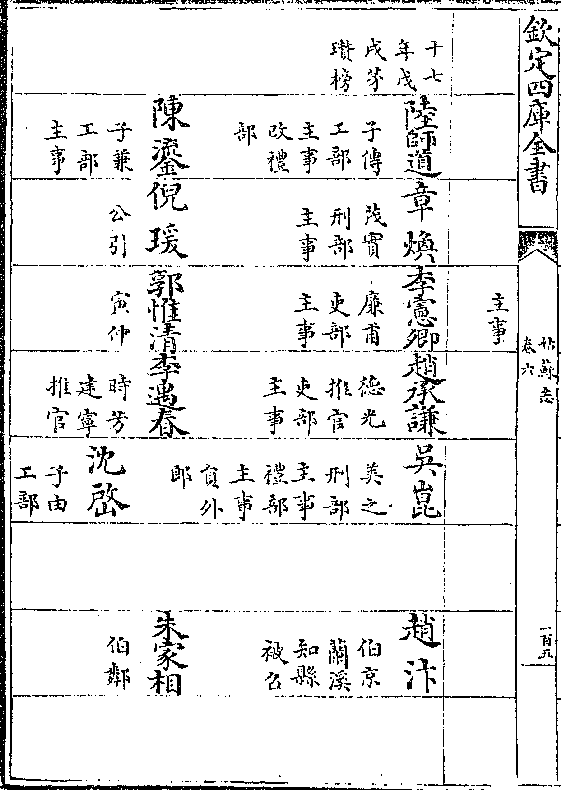 欽定四庫全書
姑蘇志
卷六
一百九
主事
十七
年戊
戌茅
瓚榜
陸師道
子傳
工部
主事
改禮
部
章煥
茂實
刑部
主事
李憲卿
廉甫
吏部
主事
趙承謙
德光
推官
吏部
主事
吳崑
美之
刑部
主事
禮部
主事
員外
郎
趙汴
伯京
蘭溪
知縣
被召
陳鎏
子兼
工部
主事
倪瑗
公引
郭惟清
寅仲
李遇春
時芳
建寧
推官
沈啓
子由
工部
朱家相
伯鄰